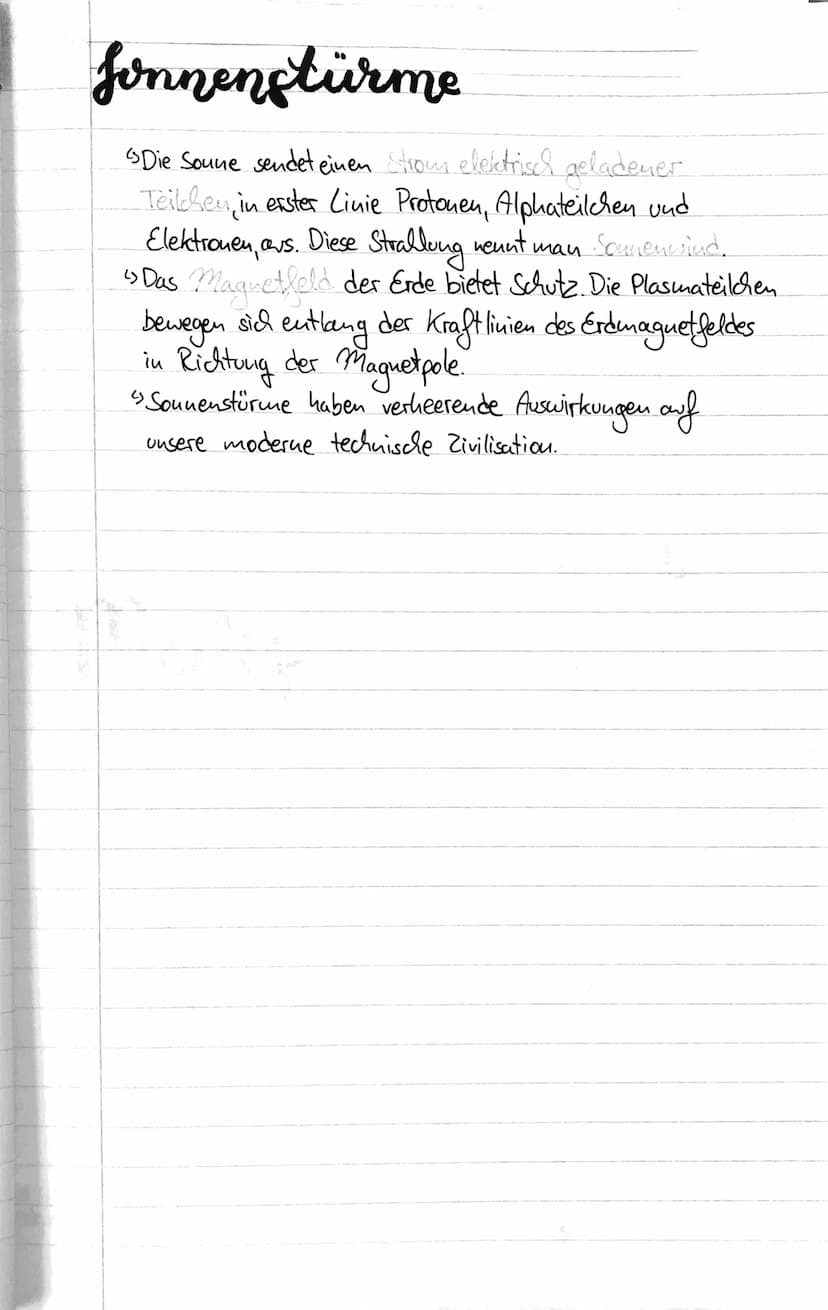 Sonnenstürme
↳ Die Sonne sendet einen Strom elektrisch geladener
Teilchen, in erster Linie Protonen, Alphateilchen und
Elektronen, aus. Diese Strahlung nennt man Sonnenwind.
↳ Das Magnetfeld der Erde bietet Schutz. Die Plasmateilchen
bewegen sich entlang der Kraftlinien des Erdmagnetfeldes
in Richtung der Magnetpole.
↳ Sonnenstürme haben verheerende Auswirkungen auf
unsere moderne technische Zivilisation.